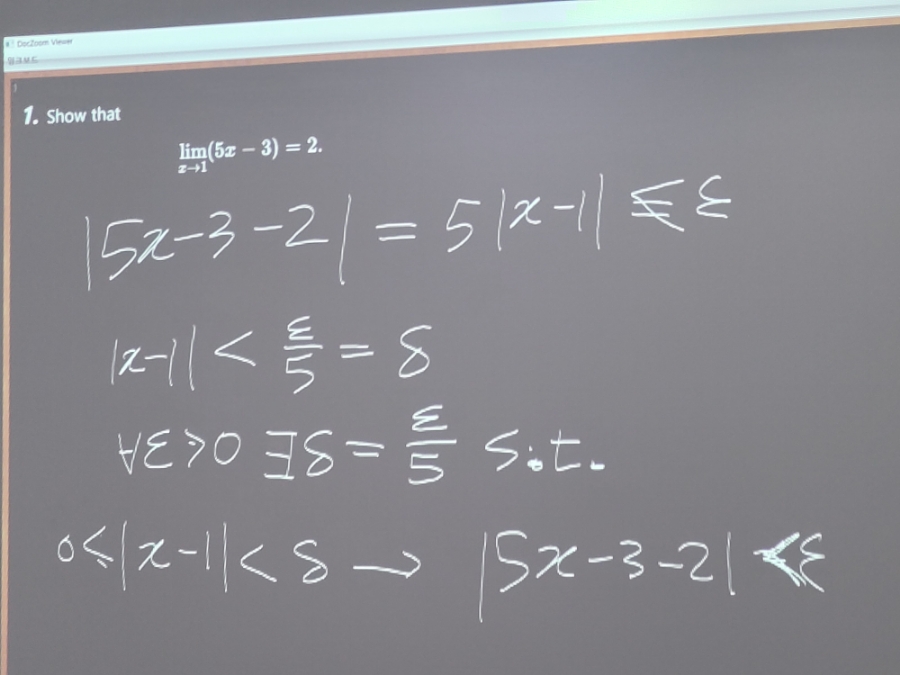 DocZoom Viewer
1. Show that
lim(5x − 3) = 2.
x→1
|5x-3-2| = 5|x-1| ≤ ε
|x-1| < ε/5 = δ
∀ε>0 ∃δ = ε/5 s.t.
0≤|x-1|<δ → |5x-3-2| < ε